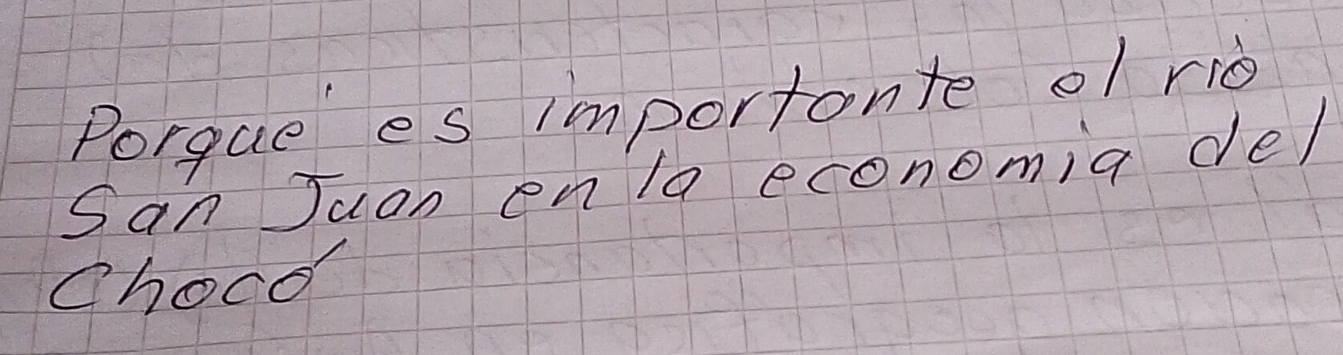 Porqué es importante el rio
San Juan en la economia del
Chocó